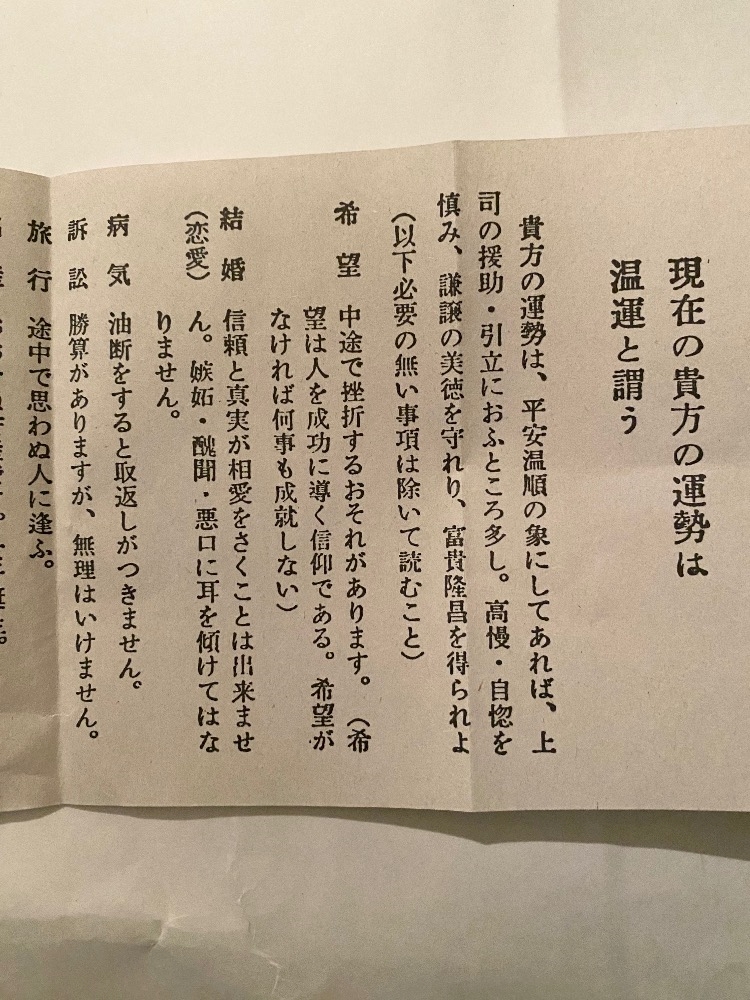 現在の貴方の運勢は
温運と謂う
貴方の運勢は、平安温順の象にしてあれば、上
司の援助・引立におふところ多し。高慢・自惚を
慎み、謙譲の美徳を守れり、富貴隆昌を得られよ
(以下必要の無い事項は除いて読むこと)
希望 中途で挫折するおそれがあります。(希
望は人を成功に導く信仰である。希望が
なければ何事も成就しない)
結婚 信頼と真実が相愛をさくことは出来ませ
(恋愛) ん。嫉妬・醜聞・悪口に耳を傾けてはな
りません。
病気 油断をすると取返しがつきません。
訴訟 勝算がありますが、無理はいけません。
旅行 途中で思わぬ人に逢ふ。